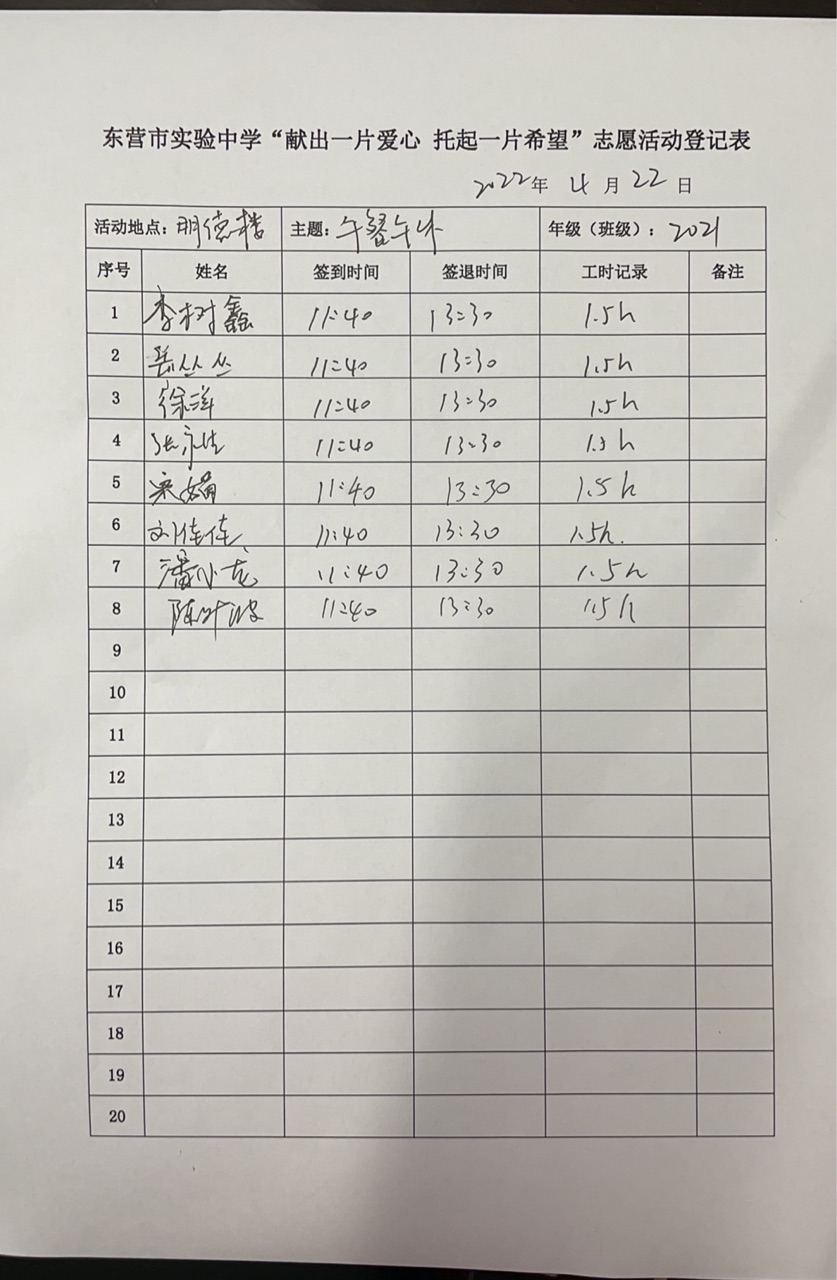 东营市实验中学“献出一片爱心 托起一片希望”志愿活动登记表
2022年 4月22日
活动地点：明德楼 主题：午餐午休 年级（班级）：2021
序号 姓名 签到时间 签退时间 工时记录 备注
1 李树鑫 11:40 13:30 1.5h
2 丛丛 11:40 13:30 1.5h
3 徐洋 11:40 13:30 1.5h
4 张 11:40 13:30 1.5h
5 11:40 13:30 1.5h
6 刘佳佳 11:40 13:30 1.5h.
7 潘小龙 11:40 13:30 1.5h
8 陈叶波 11:40 13:30 1.5h
9
10
11
12
13
14
15
16
17
18
19
20